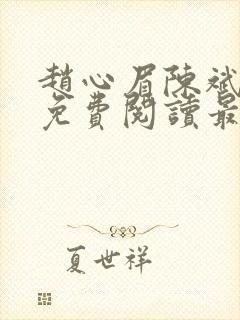 趙心眉陳斌
免費閱讀最
夏世祥